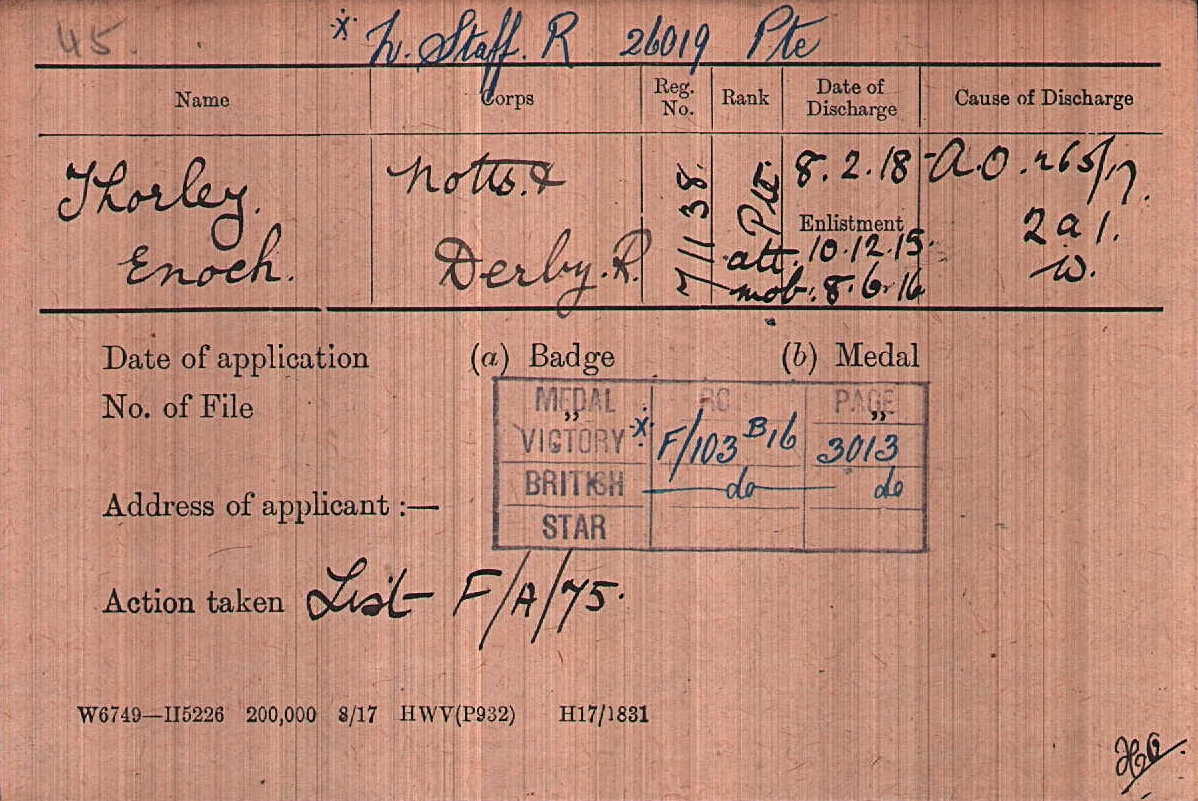 45.
* N. Staff. R 26019 Pte
Name Corps Reg. No. Rank Date of Discharge Cause of Discharge
Thorley. Enoch. Notts. & Derby. R. 71138. Pte. 8.2.18 A.O. 265/17. 2 a 1. w.
Enlistment
att. 10.12.15.
mob. 8.6.16
Date of application (a) Badge (b) Medal
No. of File „ „
MEDAL RO PAGE
VICTORY * F/103 B16 3013
BRITISH do do
STAR
Address of applicant :—
Action taken List F/A/75.
W6749—H5226 200,000 8/17 HWV(P932) H17/1831